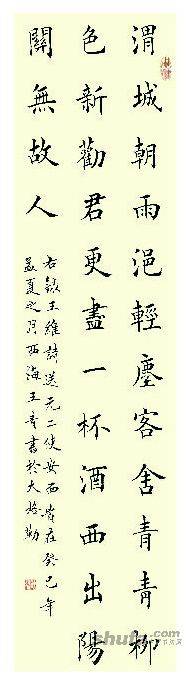 渭城朝雨浥輕塵客舍青青柳
色新勸君更盡一杯酒西出陽
關無故人
右録王維詩送元二使安西歲在癸巳年
孟夏之月西海王青書於大格勒